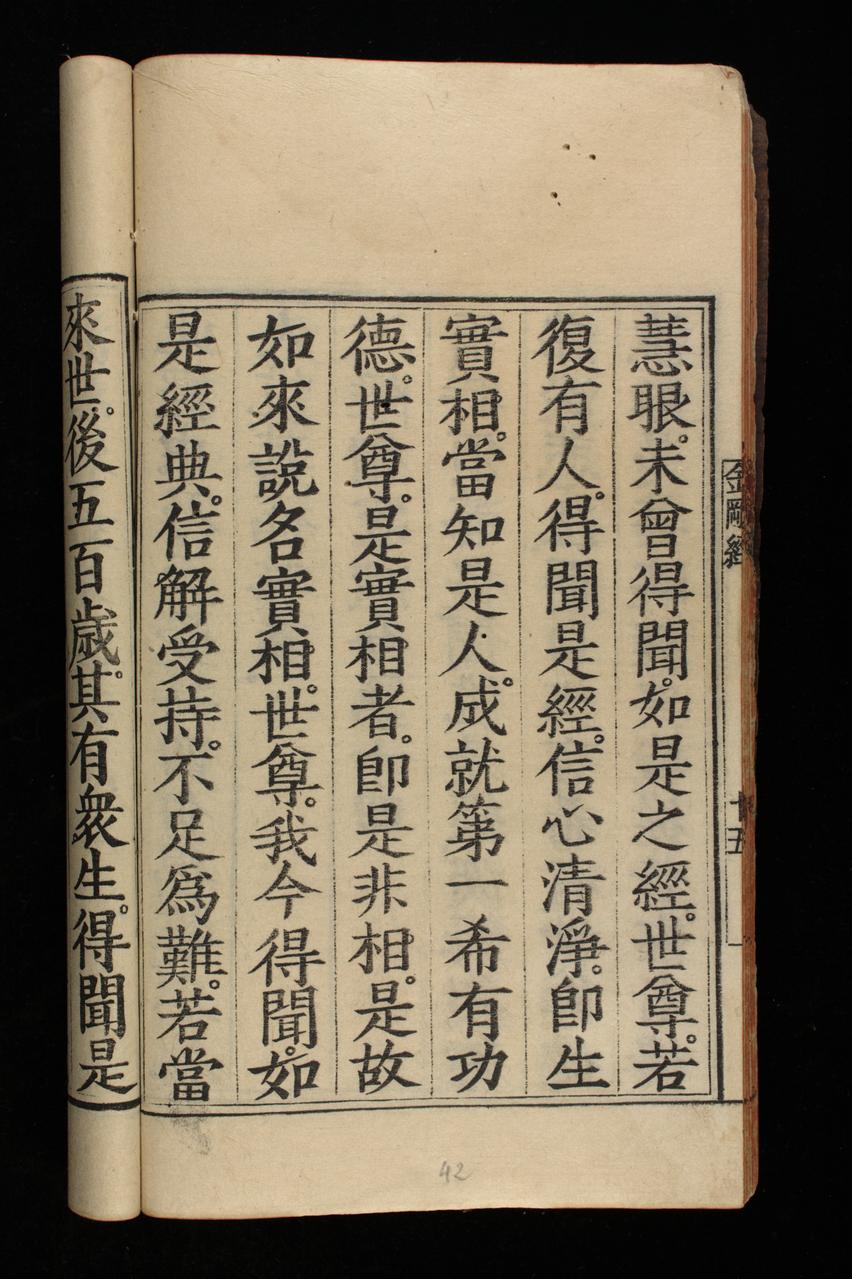 金剛經
十五
慧眼。未曾得聞。如是之經。世尊。若
復有人。得聞是經。信心清淨。卽生
實相。當知是人。成就第一希有功
德。世尊。是實相者。卽是非相。是故
如來說名實相。世尊。我今得聞。如
是經典。信解受持。不足爲難。若當
來世。後五百歲。其有衆生。得聞是
42